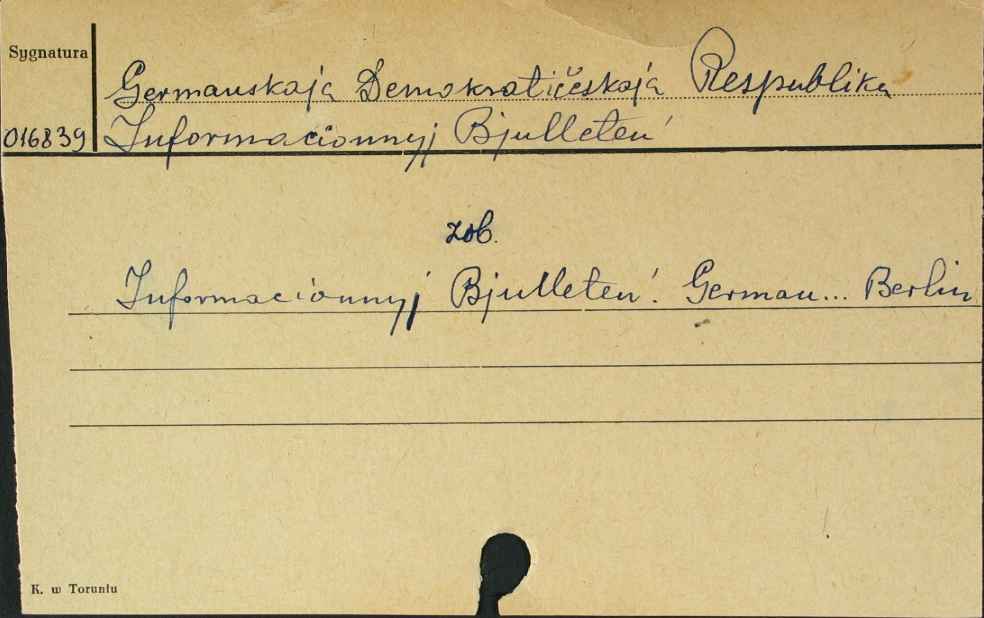 Sygnatura
Germanskaja Demokratičeskaja Respublika
016839 Informacionnyj Bjulleten'
zob.
Informacionnyj Bjulleten'. German... Berlin
K. w Toruniu